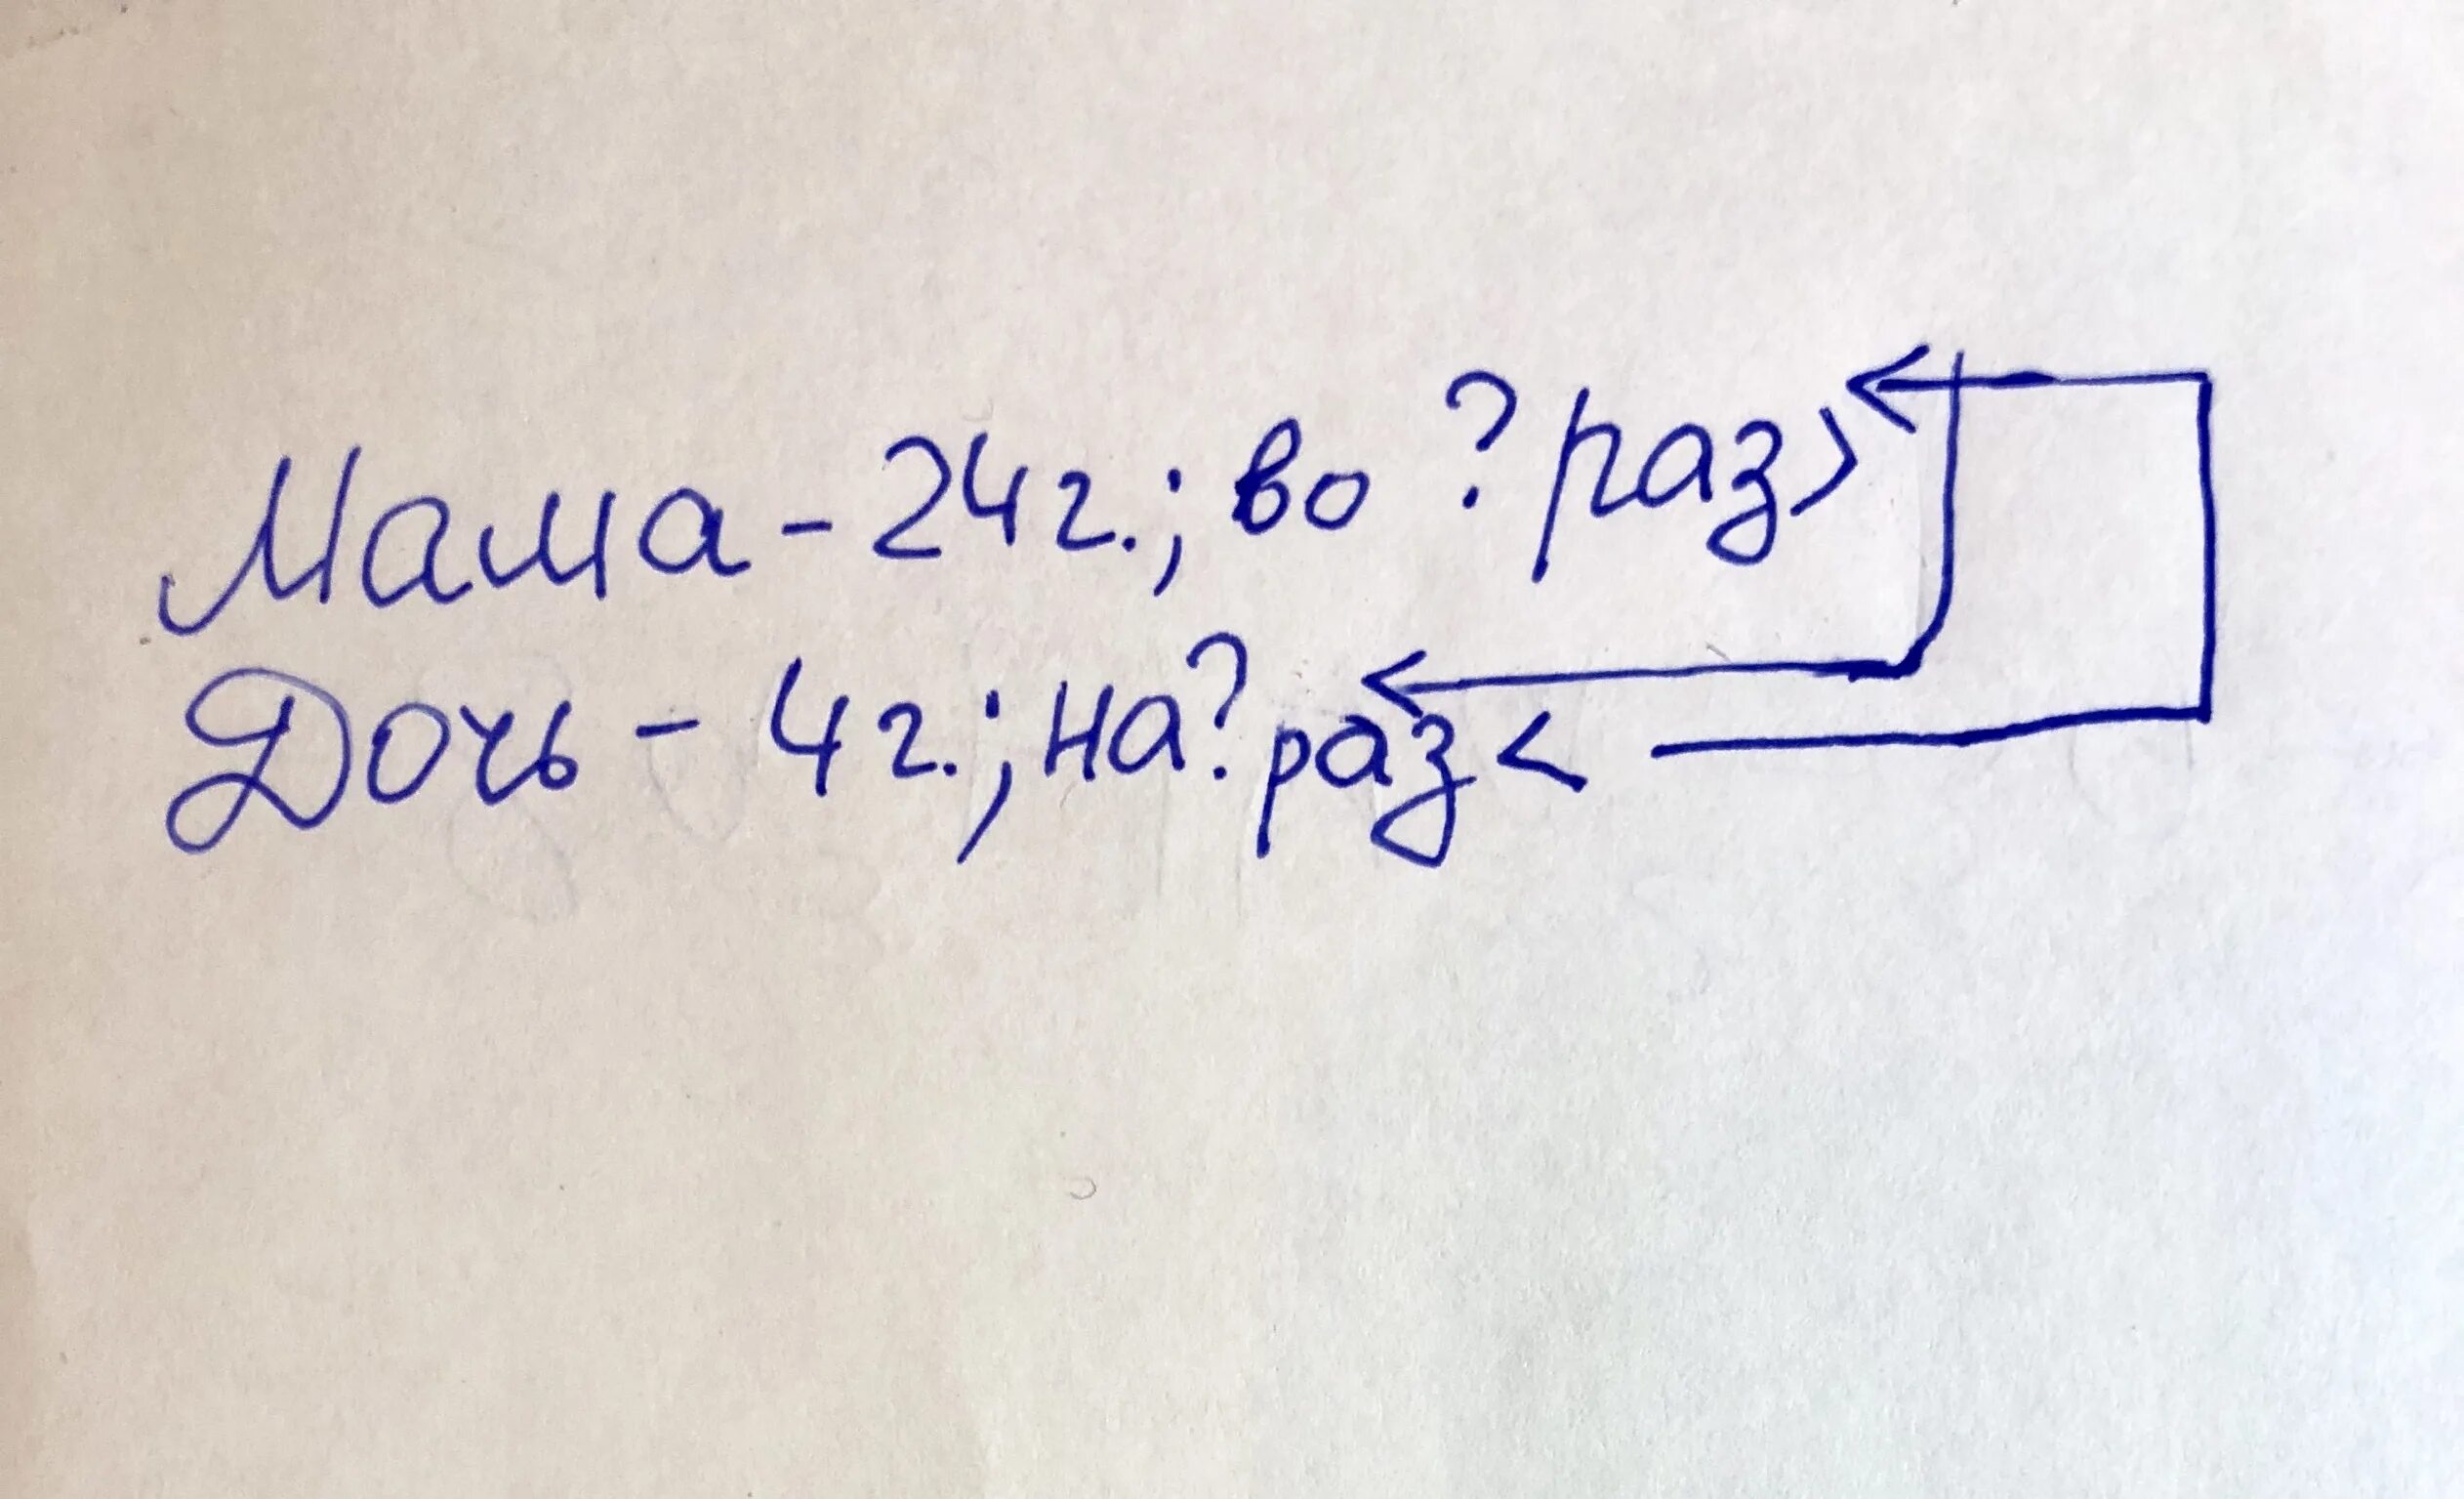 Мама - 24 г.; во ? раз >
Дочь - 4 г.; на ? раз <